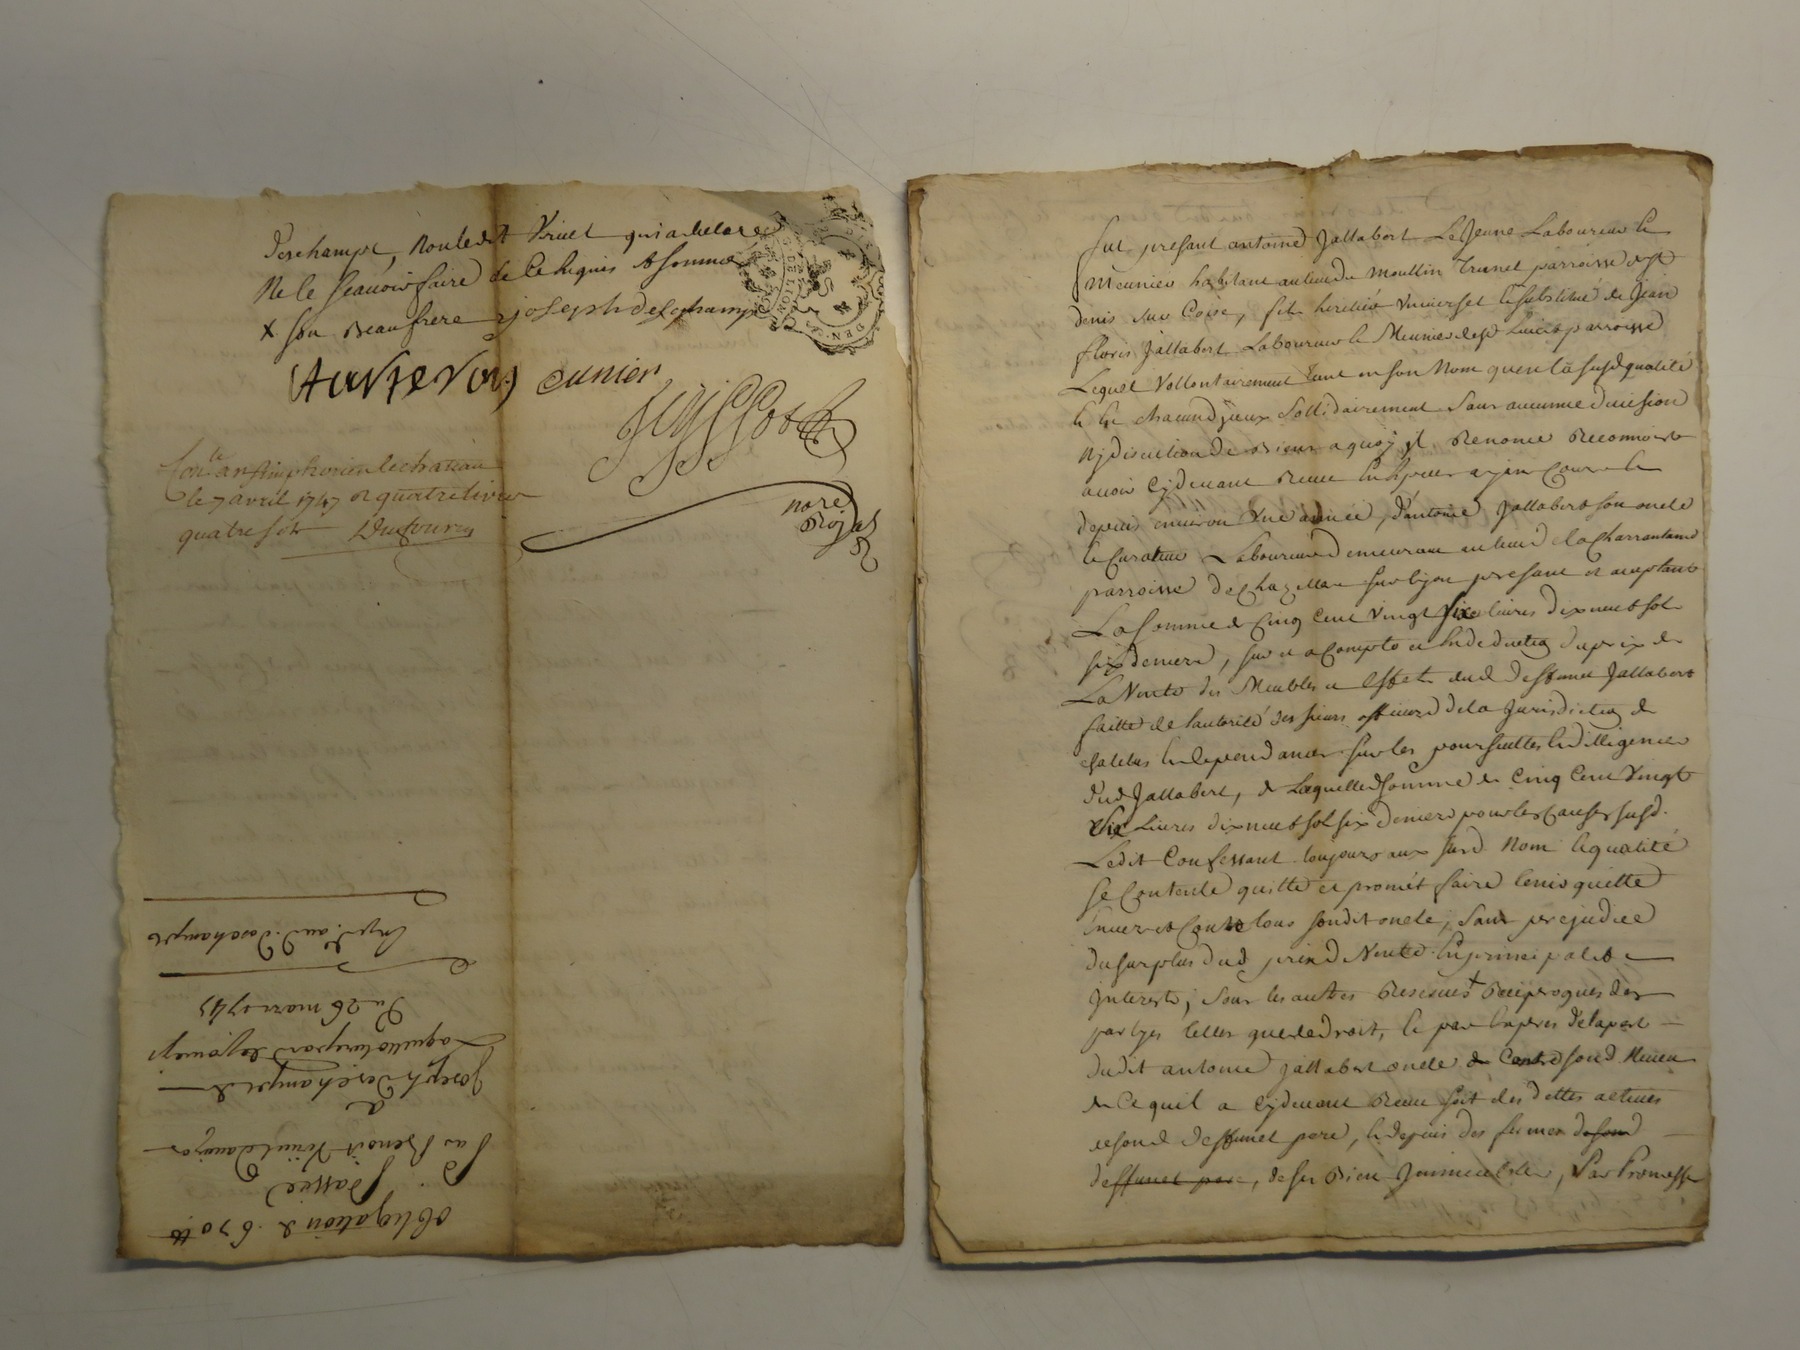 Deschamps, non ledit Viruel qui a declaré
Ne le scavoir faire de ce requis & sommé
x son beaufrere joseph deschamps
cunier
nore
Royal
Conlé a st simphorien le chateau
le 7 avril 1747 et quatre livres
quatre sols Dufournel
obligation de 670 ₶
Passée
Par Benoit
a
Joseph Deschamps
Du 26 mars 1747
Exped. aud. Deschamps
fut present antoine Jallabert Le Jeune Laboureur &
Meunier habitant au lieu du Moullin Trunel parroisse de st
denis sur Coise, fils heritier universel & substitué de Jean
floris Jallabert Laboureur & Meunier de lad parroisse
Lequel Vollontairement tant en son Nom quen la susd qualité
& lun chacun dyceux Sollidairement Sans aucunne division
Ny discution de biens a quoy il Renonce Reconnoist
avoir cydevant Receu en especes ayant Cours &
depuis environ Une année, d'antoine Jallabert son oncle
& Curateur Laboureur demeurant au lieu de la Charrantanne
parroisse de Chazelles sur Lyon present et acceptant
La somme de Cinq Cent Vingt six livres dix neuf sols
six deniers, sur et a Compte et en deduction du prix de
La Vente des Meubles et effets dud deffunct Jallabert
faitte de lautorité des sieurs officiers de la Jurisdiction de
& dependances sur les poursuittes & dilligences
dud Jallabert, de Laquelle somme de Cinq Cent Vingt
six Livres dix neuf sols six deniers pour les Causes susd.
Ledit Confessant toujours aux susd Nom & qualité
se Contente quitte et promet faire tenir quitte
envers et Contre tous sondit oncle, sans prejudice
du surplus dud prix de Vente en principal et
Interests, sous les autres Reserves Reciproques des
parties telles que de droit, & par exprés de la part
dudit antoine Jallabert oncle Contre sond Neveu
de Ce quil a cydevant Receu soit des dettes actives
de son d deffunct pere, & depuis des fermes de son d
deffunct pere, de ses Biens Immeubles, Par Promesse